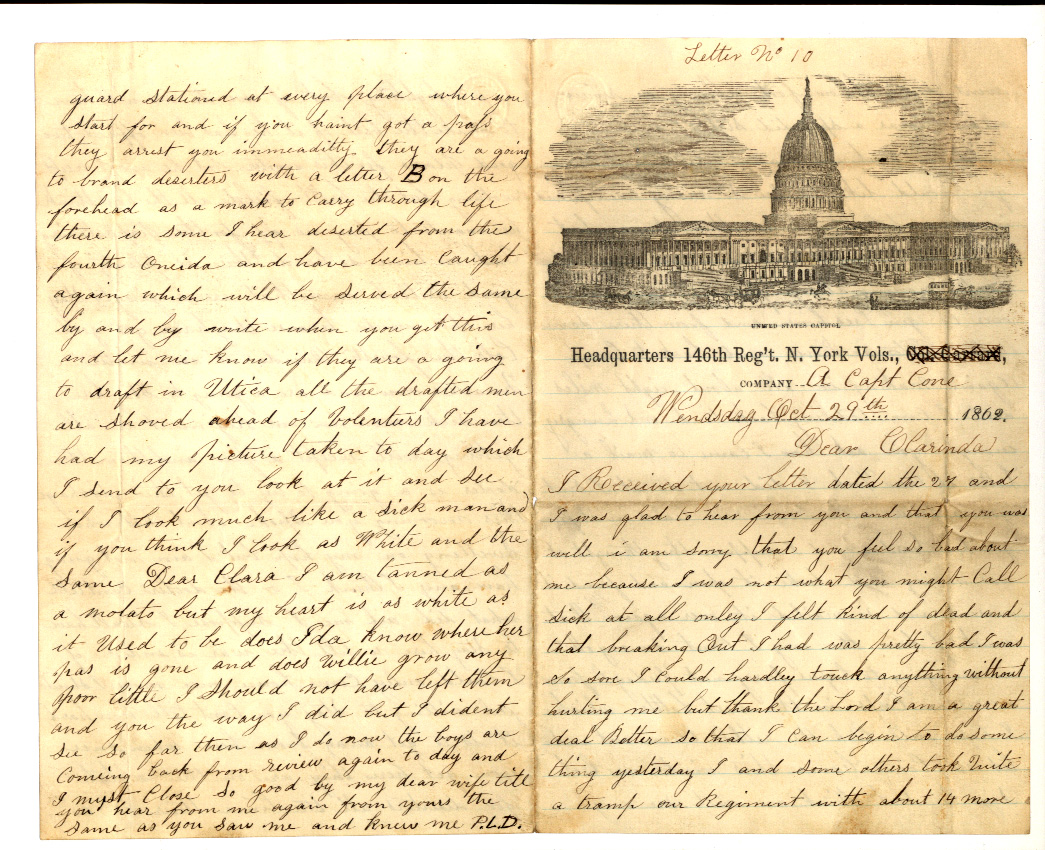 Letter No 10
UNITED STATES CAPITOL
Headquarters 146th Reg't. N. York Vols.,
COMPANY A Capt Cone
Wendsday Oct 29th 1862.
Dear Clarinda
I Received your letter dated the 27 and
I was glad to hear from you and that you was
well i am sorry that you feel so bad about
me because I was not what you might Call
sick at all onley I felt kind of dead and
that breaking Out I had was pretty bad I was
so sore I Could hardley touck anything without
hurting me but thank the Lord I am a great
deal Better so that I Can begin to do some
thing yesterday I and some others took Quite
a tramp our Regiment with about 14 more
guard stationed at every place where you
start for and if you haint got a pass
they arrest you immeaditly they are a going
to brand deserters with a letter B on the
forehead as a mark to Carry through life
there is some I hear deserted from the
fourth Oneida and have been Caught
again which will be served the same
by and by write when you get this
and let me know if they are a going
to draft in Utica all the drafted men
are shoved ahead of Volentiers I have
had my picture taken to day which
I send to you look at it and see
if I look much like a sick man and
if you think I look as White and the
same Dear Clara I am tanned as
a molato but my heart is as white as
it Used to be does Ida know where her
pas is gone and does Willie grow any
poor little I should not have left them
and you the way I did but I dident
see so far then as I do now the boys are
Comeing back from review again to day and
I must Close so good by my dear wife till
you hear from me again from yours the
same as you saw me and knew me P.L.D.